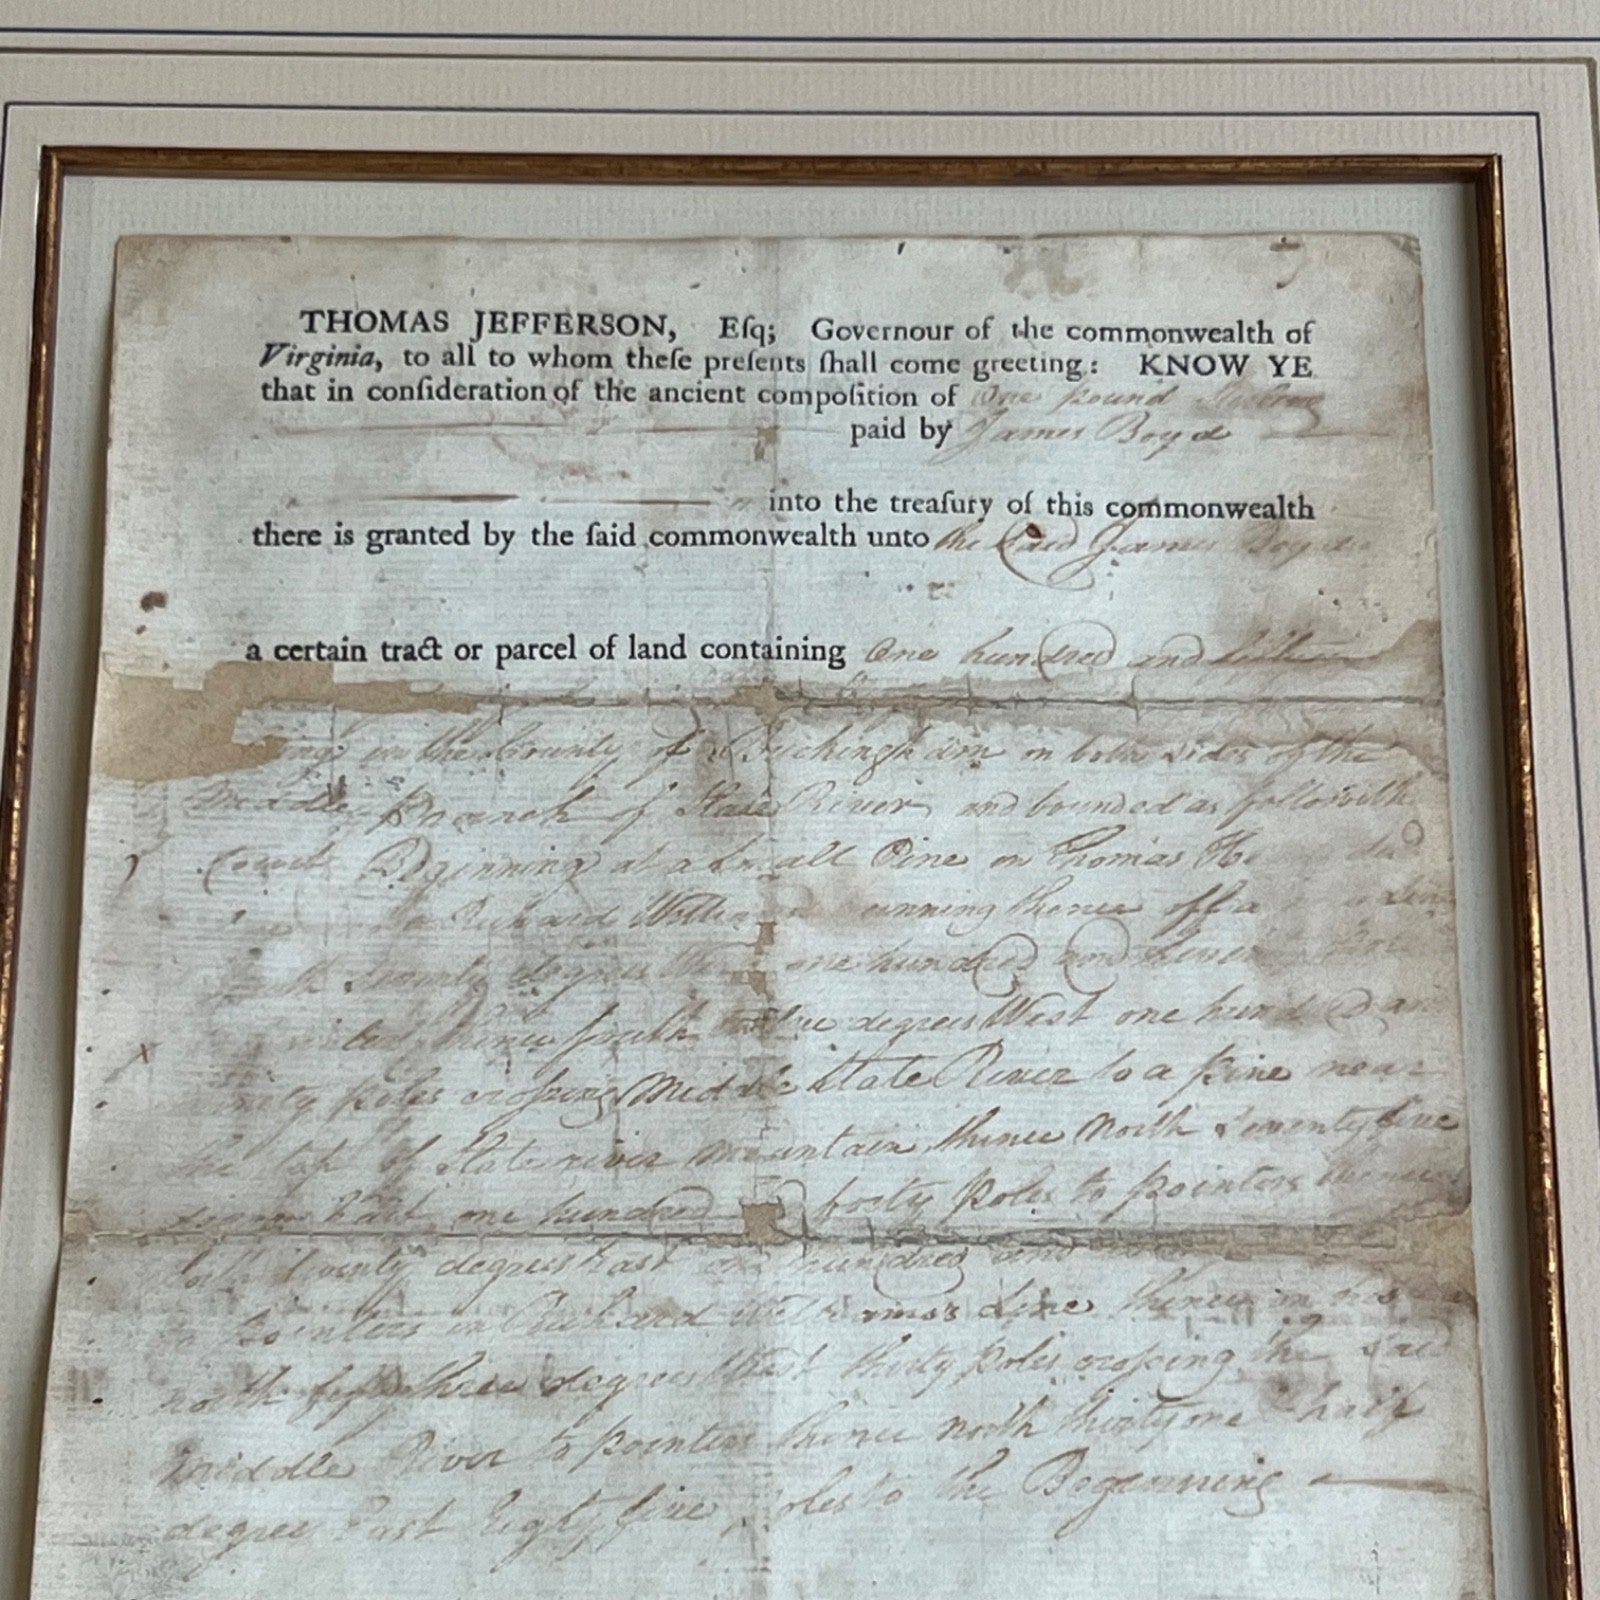 THOMAS JEFFERSON, Eſq; Governour of the commonwealth of
Virginia, to all to whom theſe preſents ſhall come greeting: KNOW YE
that in conſideration of the ancient compoſition of One pound Sterling
paid by James Boyd
into the treaſury of this commonwealth
there is granted by the ſaid commonwealth unto the Said James Boyd
a certain tract or parcel of land containing One hundred and
in the County of Buckingham on both sides of the
Middle Branch of Slate River and bounded as followeth
Beginning at a Small Pine on Thomas
Richard thence off a
degrees one hundred and
thence South degrees West one hund
poles crossing Middle Slate River to a pine near
the top of Slate river mountain thence North Seventy five
East one hundred forty poles to pointers thence
twenty degrees East hundred and
to pointers in Richard Line thence
north fifty three degrees West thirty poles crossing the Said
middle River to pointers thence north thirty one half
degree East Eighty five poles to the Beginning